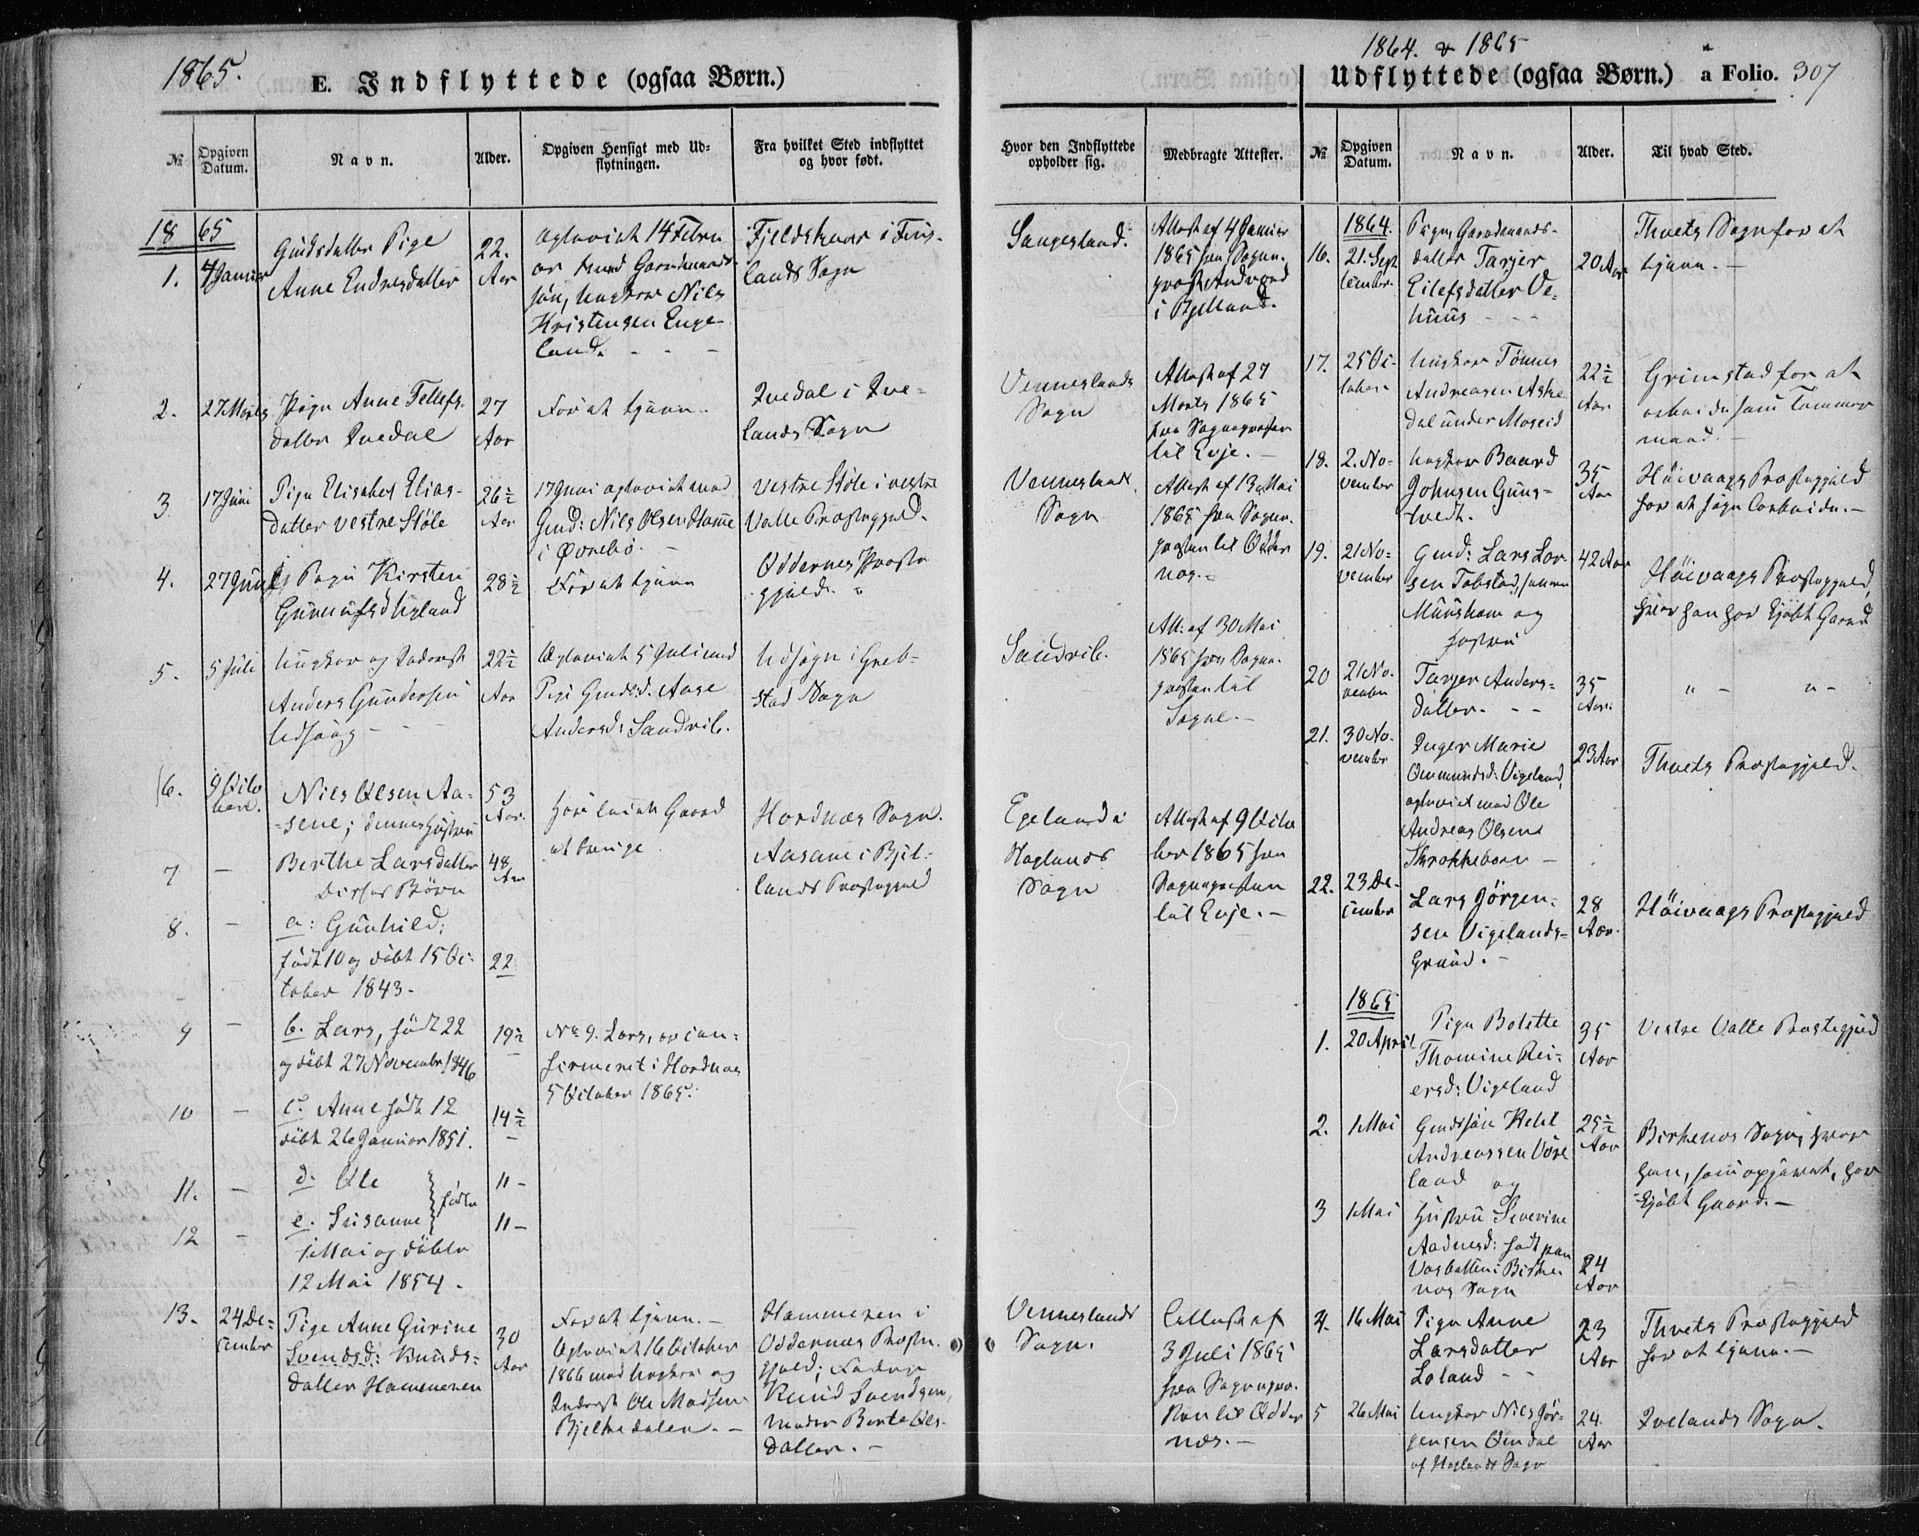 1865.
E. Indflyttede (ogsaa Børn.)
№
Opgiven Datum.
Navn.
Alder.
Opgiven Hensigt med Ud-
flytningen.
Fra hvilket Sted indflyttet
og hvor født.
Hvor den Indflyttede
opholder sig.
Medbragte Attester.
1865
1.
4 Januar
Gmdsdatter Pige
Anne Endresdatter
22.
Aar
Egteviet 14 Febru
ar med Gaardmands-
søn, Ungkar Nils
Kristensen Enge-
land.
Fjeldskaar i Fins-
lands Sogn
Sangesland.
Attest af 4 Januar
1865 fra Sogne-
præst
i Bjelland.
2.
27 Marts
Pigen Anne Tellefs-
datter Ivedal
27
Aar
For at tjene.
Ivedal i Ive-
lands Sogn
Venneslands
Sogn
Attest af 27
Marts 1865
fra Sognepræsten
til Evje.
3
17 Juni
Pige Elisabet Elias-
datter vestre Støle
26½
Aar
17 Juni egteviet med
Gmd: Nils Olsen Homme
i Øvrebø.
Vestre Støle i vestre
Valle Præstegjeld.
Vennesland
Sogn
Attest af 13 Mai
1865 fra Sogne-
præsten til Odder
nes.
4.
27 Juni
Pige Kirsten
Gunnulfsd Ugland
28½
For at tjene
Oddernes Præste
gjeld.
5.
5 Juli
Ungkar og Inderst
Anders Gundersen
Udsøög
22½
Aar
Egteviet 5 Juli med
Pige Gmdsd. Aase
Andersd: Sandrib.
Udsøgn i Greb-
stad Sogn
Sandrib.
Att. af 30 Mai
1865 fra Sogne-
præsten til
Søgne.
6.
9 Octo
ber.
Nils Olsen Aa-
sene; dennes Hustru
53
Aar.
Har leiet Gaard
at bruge.
Hordnæs Sogn.
Egeland i
Haglands
Sogn
Attest af 9 Octo
ber 1865 fra
Sognepræsten
til Evje.
7
Berthe Larsdatter
Disses Børn
48
Aar
Aasane i Bjel-
lands Præstegjeld
8.
a: Gunhild;
født 10 og døbt 15 Oc-
tober 1843.
22
9
b. Lars, født 22
og døbt 27 November 1846
19½
No 9. Lars, er con-
firmeret i Hordnes
5 October 1865.
10
c. Anne født 12
døbt 26 Januar 1851.
14½
11.
d. Ole
11
12
e. Susanne
født
11
1 Mai og døbte
12 Mai 1854.
13.
24 De-
cember
Pige Anne Gurine
Svendsd: Knuds-
datter Hammeren
30
Aar
For at tjene.
Egteviet 16 October
1866 med Ungkar og
Inderst Ole Madsen
Bjelkedalen.
Hammeren i
Oddernæs Præste-
gjeld; Fader
Knud Svendsen,
Moder Berte Ols-
datter.
Venneslands
Sogn.
Attest af
3 Juli 1865
fra Sognepræ-
sten til Odder
næs.
1864. & 1865
Udflyttede (ogsaa Børn.)
a Folio. 307
№
Opgiven Datum.
Navn.
Alder.
Til hvad Sted.
1864.
16.
21. Sept
ember
Pigen Gaardmands-
datter Tarjer
Eilefsdatter Ve-
huus
20 Aar
Thvets Sogn for at
tjene.
17.
25 Oc-
tober
Ungkar Tønnes
Andreasen Aske
dal under Moseid
22½
Aar
Grimstad for at
arbeide som Tømmer
mand.
18.
2. No-
vember
Ungkar Baard
Johnsen Guns-
tvedt.
35
Aar
Høivaags Præstegjeld
for at søge Arbeide.
19.
21 No-
vember
Gmd: Lars Lar-
sen Tobstad,
og
Hustru
42 Aar
Høivaags Præstegjeld,
hvor han har kjøbt Gaard
20
21 No-
vember
Tarjer Anders-
datter.
35
Aar.
" - " -
21.
30 No-
vember
Inger Marie
Ommundsd: Vigeland,
egteviet med Ole
Andreas Olsen
23 Aar
Thvets Præstegjeld.
22.
23 De-
cember
Lars Jørgen-
sen Vigelands-
Grund.
28
Aar.
Høivaags Præstegjeld
1865
1.
20 April
Pige Bolette
Thomine Rei-
ersd: Vigeland
35
Aar
Vestre Valle Præstegjeld
2.
1 Mai
Gmdssøn Keld
Andreassen
land og
25½
Aar
Birkenes Sogn, hvor
han, som opgivet, har
kjøbt Gaard.
3
1 Mai
Hustru Severine
Aadnesd: født paa
Vasbotten i Birke-
nes Sogn
24
Aar
4.
16 Mai
Pige Anne
Larsdatter
Loland
23
Aar
Thvets Præstegjeld
for at tjene.
5
26 Mai
Ungkar Nils Jør-
gensen Omdal
af Haglands Sogn
24.
Aar
Ivelands Sogn.